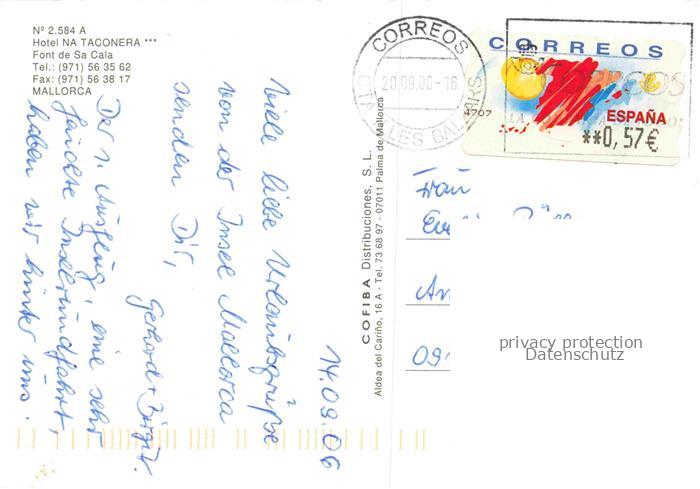 Nº 2.584 A
Hotel NA TACONERA ***
Font de Sa Cala
Tel.: (971) 56 35 62
Fax: (971) 56 38 17
MALLORCA
14.09.06
Viele liebe Urlaubsgrüße
von der Insel Mallorca
senden Dir,
Gerhard + Birgit.
Der 1. Ausflug, eine sehr
schöne Inselrundfahrt,
haben wir hinter uns.
COFIBA Distribuciones, S. L.
Aldea del Cariño, 16 A - Tel. 73 68 97 - 07011 Palma de Mallorca
CORREOS
20.09.06-16
BALEARS
CORREOS
4707
ESPAÑA
**0,57€
Frau
09
privacy protection
Datenschutz